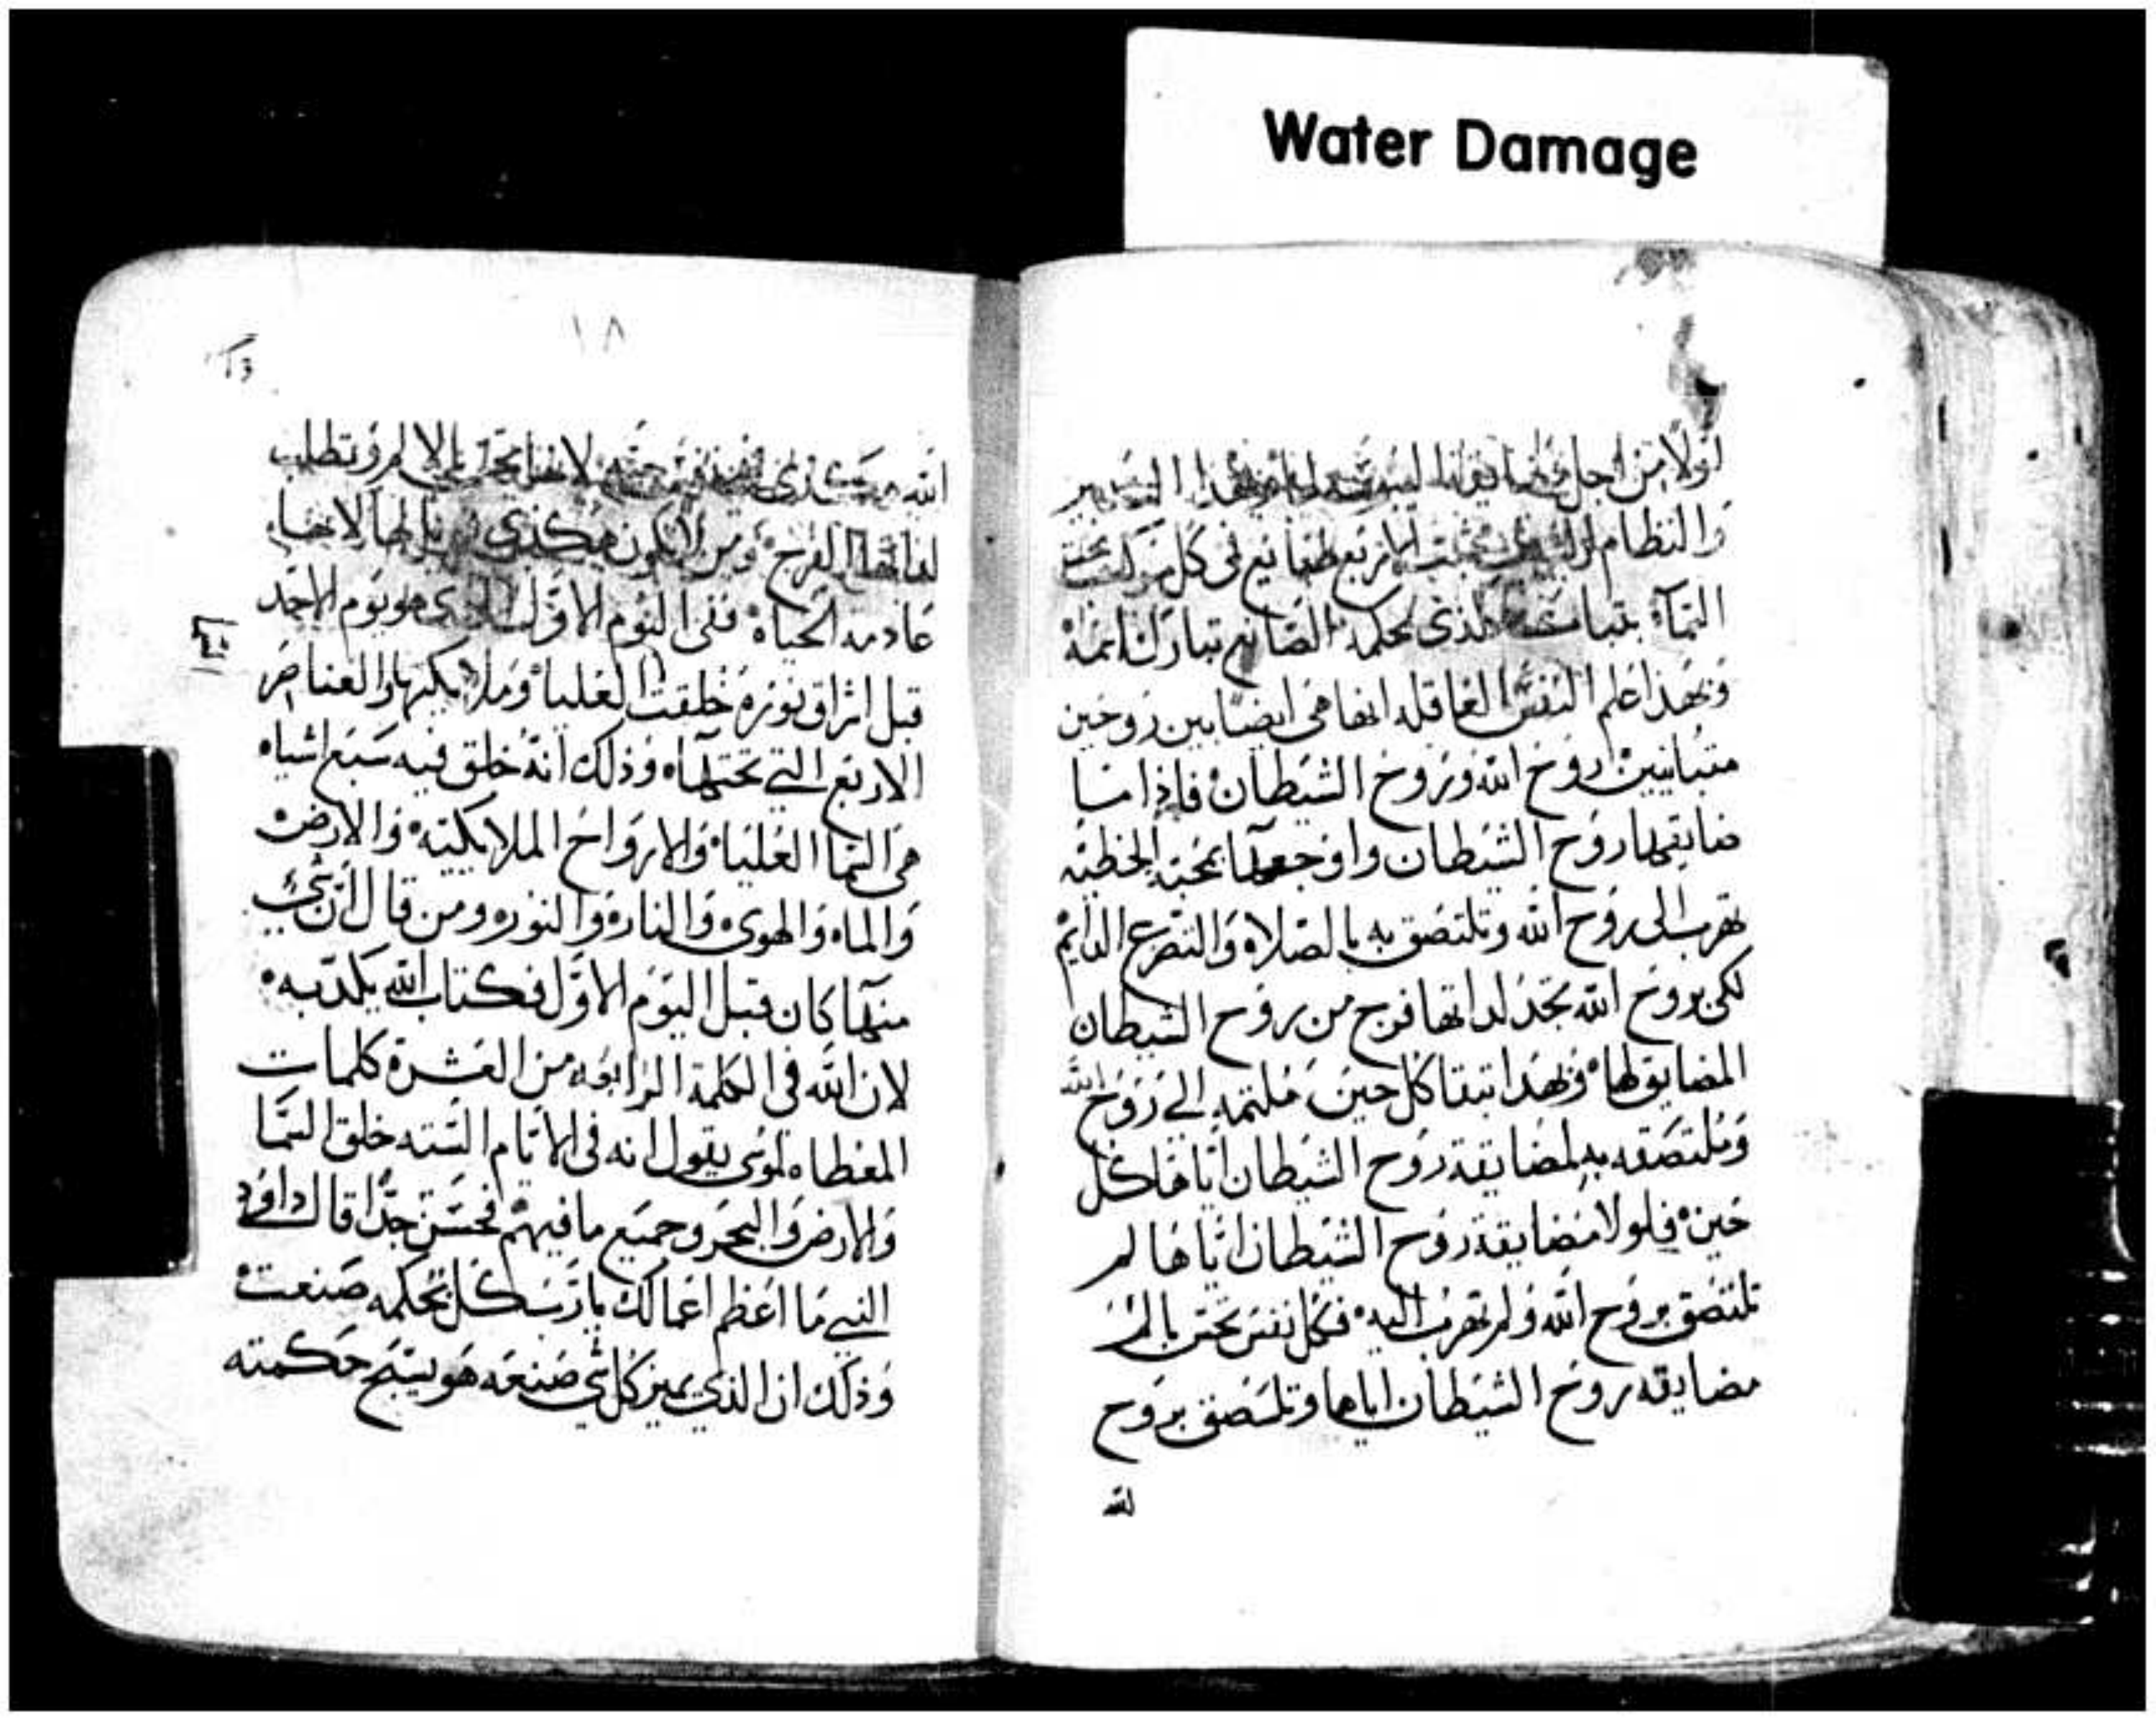 Water Damage
اولا من اجل
والنظام الاربع طبايع في كل مركب تحت
السماء بتبات الذي لحكمة الصانع تبارك اسمه
وبهذا اعلم النفس العاقله انها هي ايضا بين روحين
متباينين روح الله وروح الشيطان فاذا ما
ضايقها روح الشيطان واوجعها بمحبة الخطيه
تهرب الى روح الله وتلتصق به بالصلاه والتضرع الدايم
لكي بروح الله تجد لداتها فرج من روح الشيطان
المضايق لها وبهذا تبقا كل حين ملتجه الي روح الله
وملتصقه به لمضايقة روح الشيطان اياها كل
حين فلولا مضايقة روح الشيطان اياها لم
تلتصق بروح الله ولم تهرب اليه فكل نفس تحس بالم
مضايقه روح الشيطان اياها وتلتصق بروح
الله
١٨
الله هكذي لانها تحس بالالم وتطلب
لداتها الفرج ومن لا تكون هكذي لانها
عادمه الحياه ففي اليوم الاول الذي هو يوم الاحد
قبل اشراق نوره خلقت العليا وملايكتها والعناصر
الاربع التي تحتها وذلك انه خلق فيه سبع اشياء
هي السما العليا والارواح الملايكيه والارض
والماء والهوى والنار والنور ومن قال ان شي
منها كان قبل اليوم الاول فكتاب الله يكدبه
لان الله في الكلمة الرابعه من العشرة كلمات
المعطاه لموسى يقول انه في الايام السته خلق السما
والارض والبحر وجميع ما فيهم فحسن جدا قال داوود
النبي ما اعظم اعمالك يا رب كل بحكمه صنعت
وذلك ان الذي يميز كل شي صنعه هو يسبح حكمته